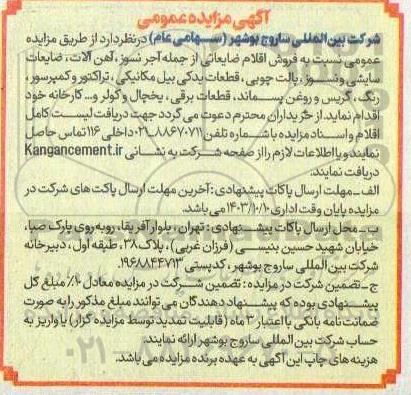 آگهی مزایده عمومی
شرکت بین المللی ساروج بوشهر (سهامی عام) در نظر دارد از طریق مزایده
عمومی نسبت به فروش اقلام ضایعاتی از جمله آجر نسوز، آهن آلات، ضایعات
سایشی و نسوز، پالت چوبی، قطعات یدکی بیل مکانیکی، تراکتور و کمپرسور،
رنگ، گریس و روغن پسماند، قطعات برقی، یخچال و کولر و... کارخانه خود
اقدام نماید. از خریداران محترم دعوت می گردد جهت دریافت لیست کامل
اقلام و اسناد مزایده با شماره تلفن ۸۸۶۷۰۷۱۱-۰۲۱ داخلی ۱۱۶ تماس حاصل
نمایند و یا اطلاعات لازم را از صفحه شرکت به نشانی Kangancement.ir
دریافت نمایند.
الف - مهلت ارسال پاکات پیشنهادی: آخرین مهلت ارسال پاکت های شرکت در
مزایده پایان وقت اداری ۱۴۰۳/۱۰/۱۰ می باشد.
ب - محل ارسال پاکات پیشنهادی: تهران، بلوار آفریقا، روبه روی پارک صبا،
خیابان شهید حسین بنیسی (فرزان غربی)، پلاک ۳۸، طبقه اول، دبیرخانه
شرکت بین المللی ساروج بوشهر، کدپستی ۱۹۶۸۸۴۴۷۱۳.
ج - تضمین شرکت در مزایده: تضمین شرکت در مزایده معادل ۱۰٪ مبلغ کل
پیشنهادی بوده که پیشنهاد دهندگان می توانند مبلغ مذکور را به صورت
ضمانت نامه بانکی با اعتبار ۳ ماه (قابلیت تمدید توسط مزایده گزار) یا واریز به
حساب شرکت بین المللی ساروج بوشهر ارائه نمایند.
هزینه های چاپ این آگهی به عهده برنده مزایده می باشد.